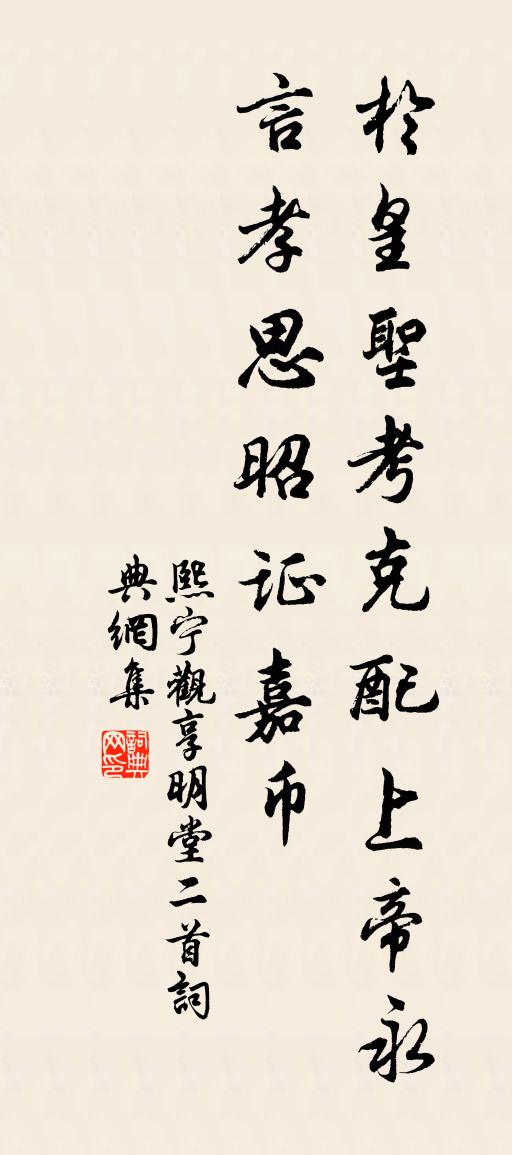 於皇聖考克配上帝永
言孝思昭证嘉币
熙宁觀享明堂二首詞
典網集
詞典网印